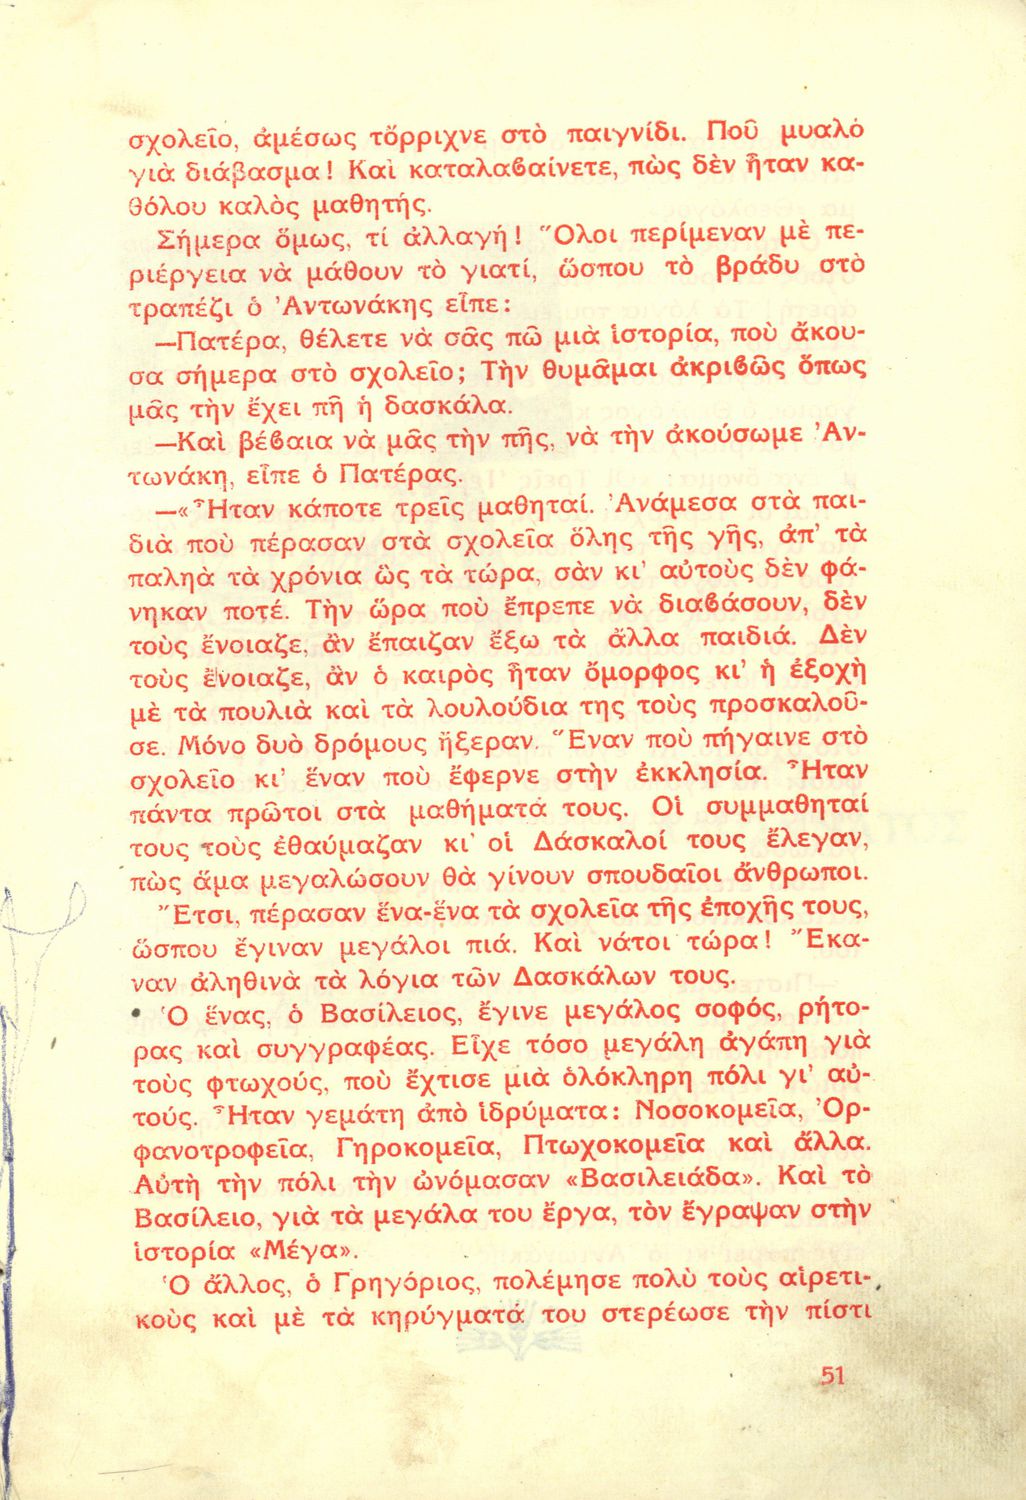 σχολεῖο, ἀμέσως τὄρριχνε στὸ παιγνίδι. Ποῦ μυαλό
γιὰ διάβασμα! Καὶ καταλαβαίνετε, πὼς δὲν ἦταν κα-
θόλου καλὸς μαθητής.
Σήμερα ὅμως, τί ἀλλαγή! Ὅλοι περίμεναν μὲ πε-
ριέργεια νὰ μάθουν τὸ γιατί, ὥσπου τὸ βράδυ στὸ
τραπέζι ὁ Ἀντωνάκης εἶπε:
—Πατέρα, θέλετε νὰ σᾶς πῶ μιὰ ἱστορία, ποὺ ἄκου-
σα σήμερα στὸ σχολεῖο; Τὴν θυμᾶμαι ἀκριβῶς ὅπως
μᾶς τὴν ἔχει πῆ ἡ δασκάλα.
—Καὶ βέβαια νὰ μᾶς τὴν πῆς, νὰ τὴν ἀκούσωμε Ἀν-
τωνάκη, εἶπε ὁ Πατέρας.
—«Ἦταν κάποτε τρεῖς μαθηταί. Ἀνάμεσα στὰ παι-
διὰ ποὺ πέρασαν στὰ σχολεῖα ὅλης τῆς γῆς, ἀπ' τὰ
παληὰ τὰ χρόνια ὣς τὰ τώρα, σὰν κι' αὐτοὺς δὲν φά-
νηκαν ποτέ. Τὴν ὥρα ποὺ ἔπρεπε νὰ διαβάσουν, δὲν
τοὺς ἔνοιαζε, ἂν ἔπαιζαν ἔξω τὰ ἄλλα παιδιά. Δὲν
τοὺς ἔνοιαζε, ἂν ὁ καιρὸς ἦταν ὄμορφος κι' ἡ ἐξοχὴ
μὲ τὰ πουλιὰ καὶ τὰ λουλούδια της τοὺς προσκαλοῦ-
σε. Μόνο δυὸ δρόμους ἤξεραν. Ἕναν ποὺ πήγαινε στὸ
σχολεῖο κι' ἕναν ποὺ ἔφερνε στὴν ἐκκλησία. Ἦταν
πάντα πρῶτοι στὰ μαθήματά τους. Οἱ συμμαθηταί
τους τοὺς ἐθαύμαζαν κι' οἱ Δάσκαλοί τους ἔλεγαν,
πὼς ἅμα μεγαλώσουν θὰ γίνουν σπουδαῖοι ἄνθρωποι.
Ἔτσι, πέρασαν ἕνα-ἕνα τὰ σχολεῖα τῆς ἐποχῆς τους,
ὥσπου ἔγιναν μεγάλοι πιά. Καὶ νάτοι τώρα! Ἔκα-
ναν ἀληθινὰ τὰ λόγια τῶν Δασκάλων τους.
Ὁ ἕνας, ὁ Βασίλειος, ἔγινε μεγάλος σοφός, ρήτο-
ρας καὶ συγγραφέας. Εἶχε τόσο μεγάλη ἀγάπη γιὰ
τοὺς φτωχούς, ποὺ ἔχτισε μιὰ ὁλόκληρη πόλι γι' αὐ-
τούς. Ἦταν γεμάτη ἀπὸ ἱδρύματα: Νοσοκομεῖα, Ὀρ-
φανοτροφεῖα, Γηροκομεῖα, Πτωχοκομεῖα καὶ ἄλλα.
Αὐτὴ τὴν πόλι τὴν ὠνόμασαν «Βασιλειάδα». Καὶ τὸ
Βασίλειο, γιὰ τὰ μεγάλα του ἔργα, τὸν ἔγραψαν στὴν
ἱστορία «Μέγα».
Ὁ ἄλλος, ὁ Γρηγόριος, πολέμησε πολὺ τοὺς αἱρετι-
κοὺς καὶ μὲ τὰ κηρύγματά του στερέωσε τὴν πίστι
51